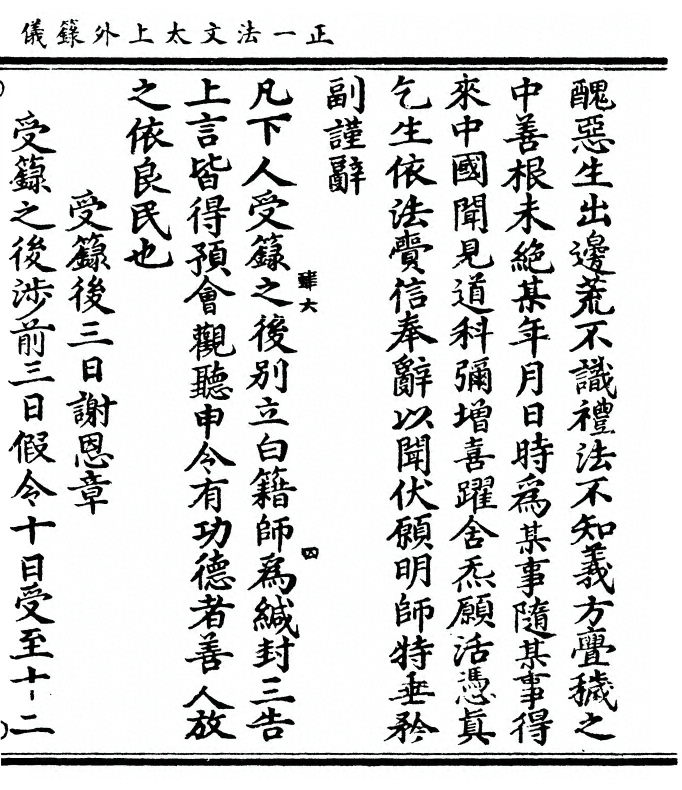 正一法文太上外籙儀
醜惡生出邊荒不識禮法不知義方亶穢之
中善根未絶某年月日時為某事隨某事得
來中國聞見道科彌增喜躍含炁願活憑真
乞生依法賫信奉辭以聞伏願明師特垂矜
副謹辭
肆六
四
凡下人受籙之後別立白籍師為緘封三告
上言皆得預會觀聽申令有功德者善人放
之依良民也
受籙後三日謝恩章
受籙之後涉前三日假令十日受至十二